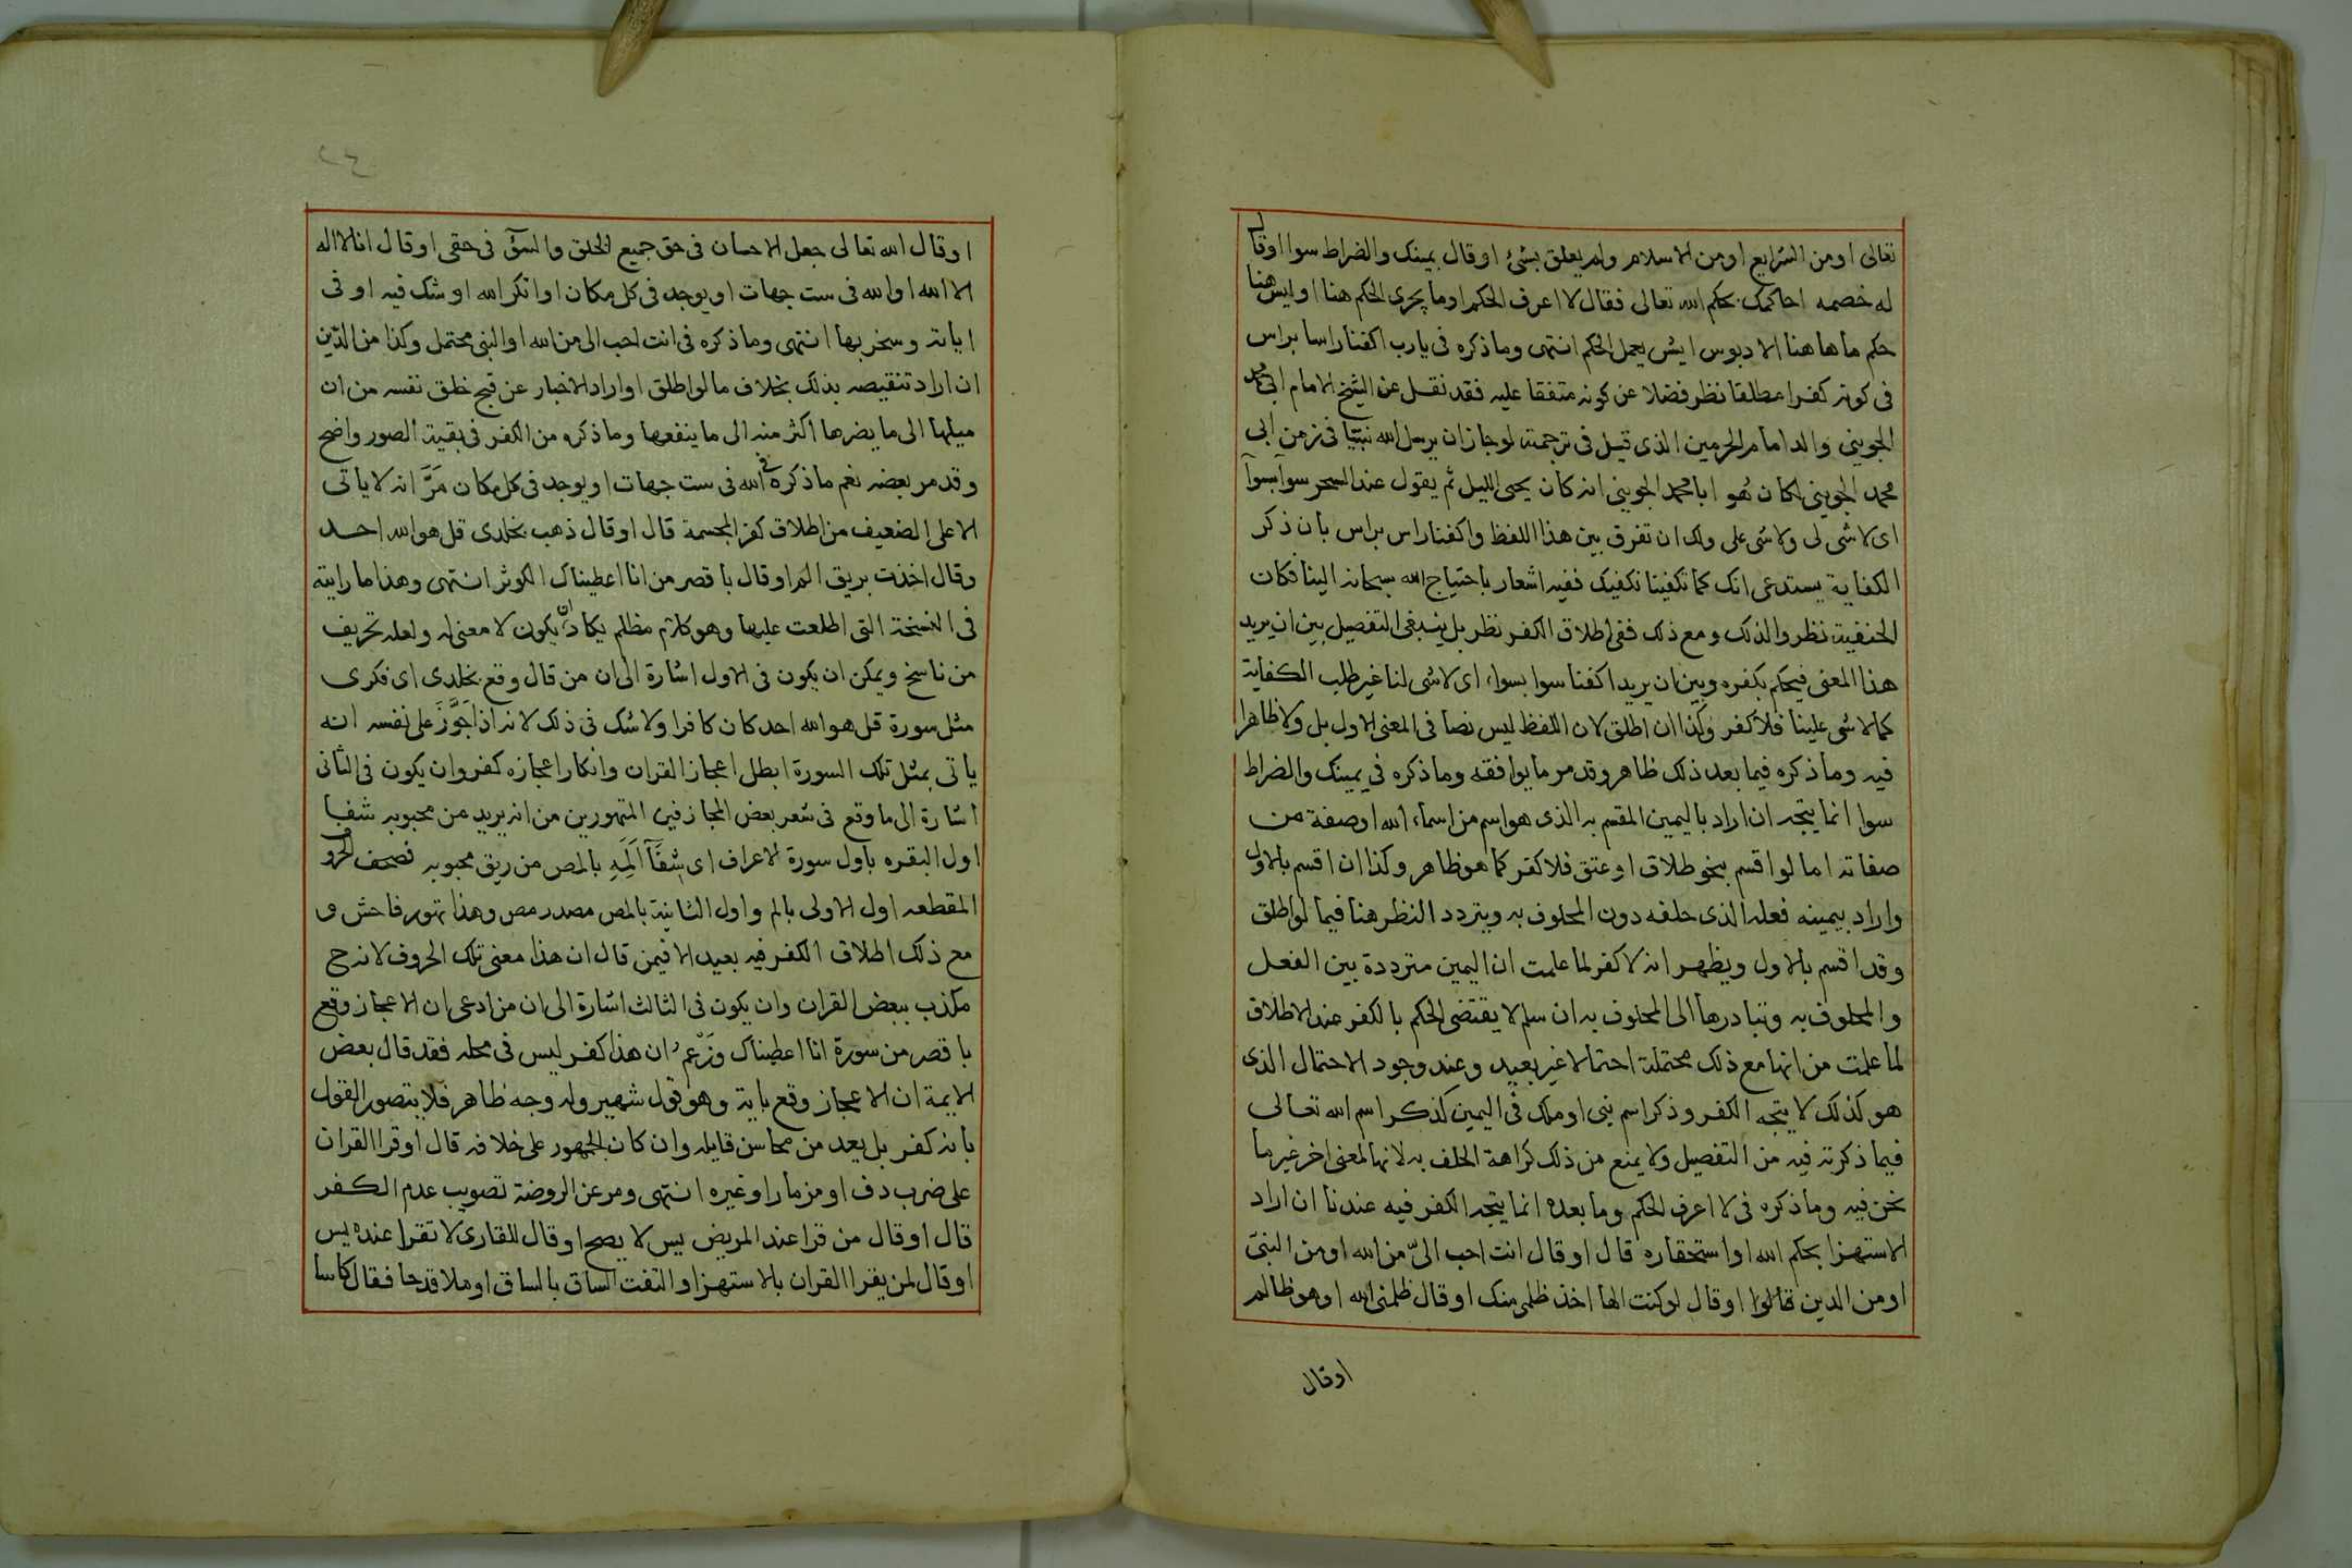 تعالى او من الشرايع او من الاسلام ولم يعلق بشئ او قال يمينك والضراط سوا او قال
له خصمه احاكمك بحكم الله تعالى فقال لا اعرف الحكم او ما يجرى الحكم هنا او ليس هنا
حكم ما هاهنا الا دبوس ايش يعمل الحكم انتهى وما ذكره فى يا رب اكفنا راسا براس
فى كونه كفرا مطلقا نظر فضلا عن كونه متفقا عليه فقد نقل عن الشيخ الامام ابى محمد
الجوينى والد امام الحرمين الذى قيل فى ترجمته لو جاز ان يرسل الله نبيّا فى زمن ابى
محمد الجوينى لكان هُو ابا محمد الجوينى انه كان يحيى الليل ثم يقول عند السحر سوآ بسوآ
اى لا شى لى ولا شى على ولك ان تفرق بين هذا اللفظ واكفنا راس براس بان ذكر
الكفاية يستدعى انك كما تكفينا نكفيك ففيه اشعار باحتياج الله سبحانه الينا فكان
الحنفية نظروا لذلك ومع ذلك ففى اطلاق الكفر نظر بل ينبغى التفصيل بين ان يريد
هذا المعنى فيحكم بكفره وبين ان يريد اكفنا سوا بسواء اى لا شى لنا غير طلب الكفاية
كما لا شى علينا فلا كفر وَكذا ان اطلق لان اللفظ ليس نصا فى المعنى الاول بل ولا ظاهرا
فيه وما ذكره فيما بعد ذلك ظاهر وقد مر ما يوافقه وما ذكره في يمينك والضراط
سوا انما يتجه ان اراد باليمين المقسم به الذى هو اسم من اسماء الله او صفة من
صفاته اما لو اقسم بنحو طلاق او عتق فلا كفر كما هو ظاهر وكذا ان اقسم بالاول
واراد بيمينه فعله الذى حلفه دون المحلوف به ويتردد النظر هنا فيما لو اطلق
وقد اقسم بالاول ويظهر انه لا كفر لما علمت ان اليمين مترددة بين الفعل
والمحلوف به وتبادرها الى المحلوف به ان سلم لا يقتضى الحكم بالكفر عند الاطلاق
لما علمت من انها مع ذلك محتملة احتمالا غير بعيد وعند وجود الاحتمال الذى
هو كذلك لا يتجه الكفر وذكر اسم نبى او ملك فى اليمين كذكر اسم الله تعالى
فيما ذكرته فيه من التفصيل ولا يمنع من ذلك كراهة الحلف به لانها لمعنى اخر غير ما
نحن فيه وما ذكره فى لا اعرف الحكم وما بعده انما يتجه الكفر فيه عندنا ان اراد
الاستهزا بحكم الله او استحقاره قال او قال انت احب الىّ من الله او من النبىّ
او من الدين قالوا او قال لو كنت الها اخذ ظلمى منك او قال ظلمنى الله او هو ظالم
او قال
٢٤
او قال الله تعالى جعل الاحسان فى حق جميع الخلق والسوٓ فى حقى او قال انا لا اله
الا الله او الله فى ست جهات او يوجد فى كل مكان او انكر الله او شك فيه او فى
اياته وسخر بها انتهى وما ذكره فى انت احب الى من الله او النبى محتمل وكذا من الدّين
ان اراد تنقيصه بذلك بخلاف ما لو اطلق او اراد الاخبار عن قبح خلق نفسه من ان
ميلها الى ما يضرها اكثر منه الى ما ينفعها وما ذكره من الكفر فى بقية الصور واضح
وقد مر بعضه نعم ما ذكره فى الله فى ست جهات او يوجد فى كل مكان مَرَّ انه لا ياتى
الا على الضعيف من اطلاق كفر المجسمة قال او قال ذهب بخلدى قل هو الله احد
وقال اخذت بريق الم او قال با قصر من انا اعطيناك الكوثر انتهى وهذا ما رايته
فى النسخة التى اطلعت عليها وهو كلام مظلم يكاد ان يكون لا معنى له ولعله تحريف
من ناسخ ويمكن ان يكون فى الاول اشارة الى ان من قال وقع بخلدى اى فكرى
مثل سورة قل هو الله احد كان كافرا ولا شك فى ذلك لانه اذا جَوَّزَ على نفسه انه
ياتى بمثل تلك السورة ابطل اعجاز القران وانكار اعجازه كفر وان يكون فى الثانى
اشارة الى ما وقع فى شعر بعض المجازفين المتهورين من انه يريد من محبوبه شفا
اول البقره باول سورة الاعراف اى شِفَآَ اَلَمِهِ بالمص من ريق محبوبه فصحف الحروف
المقطعه اول الاولى بالم واول الثانية بالمص مصدر مص وهذا تهور فاحش و
مع ذلك اطلاق الكفر فيه بعيد الا فيمن قال ان هذا معنى تلك الحروف لانه ح
مكذب ببعض القران وان يكون فى الثالث اشارة الى ان من ادعى ان الاعجاز وقع
با قصر من سورة انا اعطيناك وَزعم ان هذا كفر ليس فى محله فقد قال بعض
الايمة ان الاعجاز وقع باية وهو قول شهير وله وجه ظاهر فلا يتصور القول
بانه كفر بل يعد من محاسن قايله وان كان الجمهور على خلافه قال او قرا القران
على ضرب دف او مزمار او غيره انتهى ومر عن الروضة تصويب عدم الكفر
قال او قال من قرا عند المريض يس لا يصح او قال للقارى لا تقرا عنده يس
او قال لمن يقرا القران بالاستهزا والتفت الساق بالساق او ملا قدحا فقال كاسا